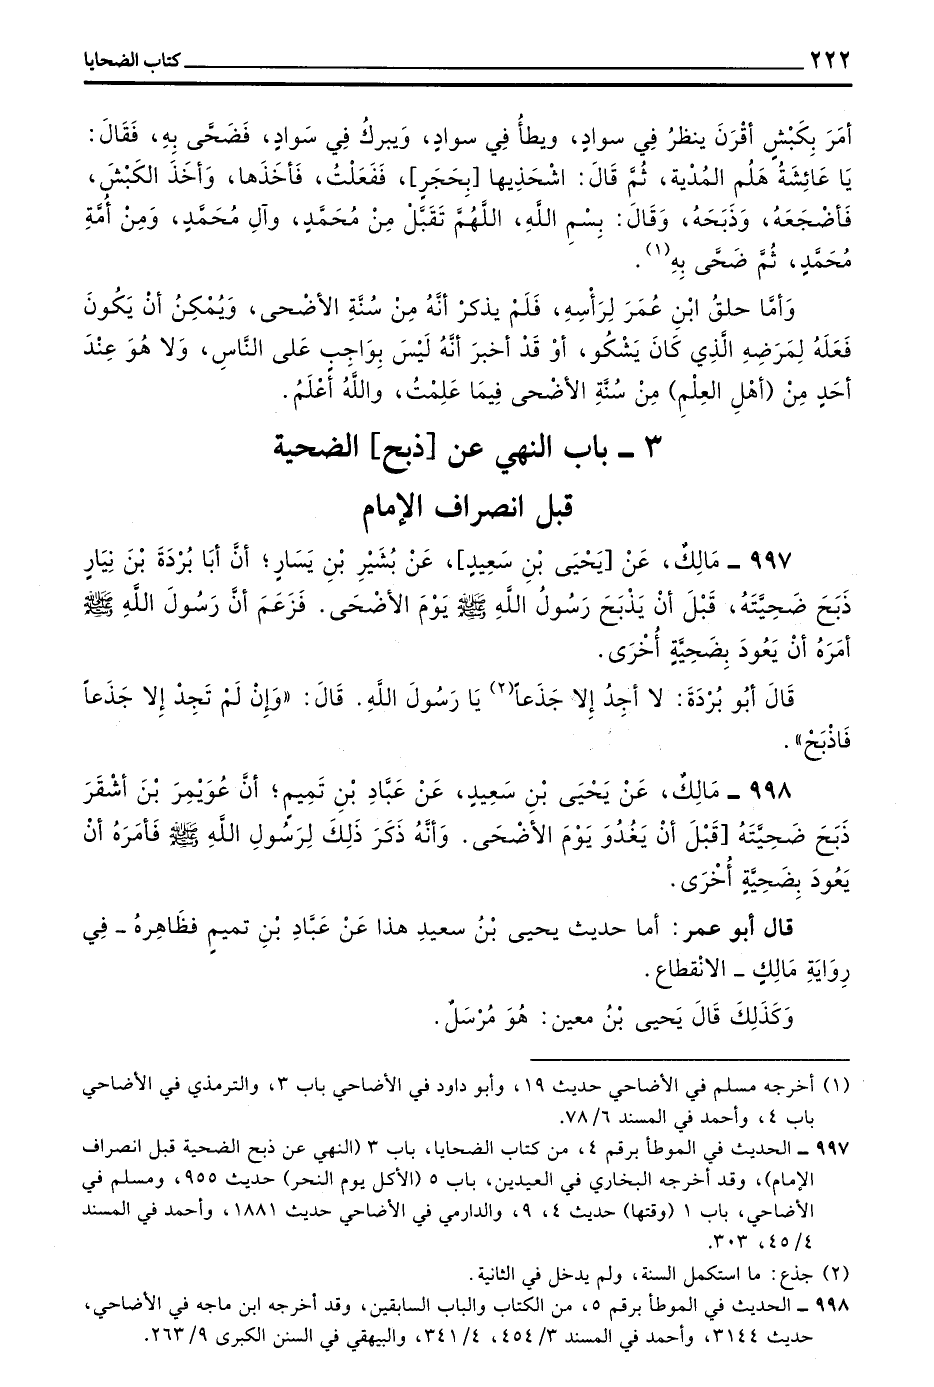 ٢٢٢ كتاب الضحايا
أمَرَ بِكَبْشٍ أقْرَنَ ينظرُ فِي سوادٍ، ويطأُ فِي سوادٍ، وَيبركُ فِي سَوادٍ، فَضَحَّى بِهِ، فَقَالَ:
يَا عَائِشَةُ هَلُم المُدْية، ثُمَّ قَالَ: اشْحَذِيها [بِحَجَرٍ]، فَفَعَلْتُ، فَأخَذَها، وَأخَذَ الكَبْش،
فَأضْجَعَهُ، وَذَبَحَهُ، وَقَالَ: بِسْمِ اللَّهِ، اللَّهُمَّ تَقَبَّلْ مِنْ مُحَمَّدٍ، وَآلِ مُحَمَّدٍ، وَمِنْ أُمَّةِ
مُحَمَّدٍ، ثُمَّ ضَحَّى بِهِ(١).
وَأمَّا حلقُ ابْنِ عُمَرَ لِرَأْسِهِ، فَلَمْ يذكرْ أنَّهُ مِنْ سُنَّةِ الأضْحى، وَيُمْكِنُ أنْ يَكُونَ
فَعَلَهُ لِمَرَضِهِ الَّذِي كَانَ يَشْكُو، أوْ قَدْ أخبرَ أنَّهُ لَيْسَ بِوَاجِبٍ عَلى النَّاسِ، وَلا هُوَ عِنْدَ
أحَدٍ مِنْ (أهْلِ العِلْمِ) مِنْ سُنَّةِ الأضْحى فِيمَا عَلِمْتُ، واللَّهُ أعْلَمُ.
٣ ـ باب النهي عن [ذبح] الضحية
قبل انصراف الإمام
٩٩٧ ـ مَالِكٌ، عَنْ [يَحْيَى بْنِ سَعِيدٍ]، عَنْ بُشَيْرِ بْنِ يَسَارٍ؛ أنَّ أبَا بُرْدَةَ بْنَ نِيَارٍ
ذَبَحَ ضَحِيَّتَهُ، قَبْلَ أنْ يَذْبَحَ رَسُولُ اللَّهِ ﷺ يَوْمَ الأضْحَى. فَزَعَمَ أنَّ رَسُولَ اللَّهِ ﷺ
أمَرَهُ أنْ يَعُودَ بِضَحِيَّةٍ أُخْرَى.
قَالَ أبُو بُرْدَةَ: لا أجِدُ إلا جَذَعاً(٢) يَا رَسُولَ اللَّهِ. قَالَ: «وَإنْ لَمْ تَجِدْ إلا جَذَعاً
فَاذْبَحْ».
٩٩٨ ـ مَالِكٌ، عَنْ يَحْيَى بْنِ سَعِيدٍ، عَنْ عَبَّادِ بْنِ تَمِيمٍ؛ أنَّ عُوَيْمِرَ بْنَ أشْقَرَ
ذَبَحَ ضَحِيَّتَهُ [قَبْلَ أنْ يَغْدُوَ يَوْمَ الأضْحَى. وَأنَّهُ ذَكَرَ ذَلِكَ لِرَسُولِ اللَّهِ ﷺ فَأمَرَهُ أنْ
يَعُودَ بِضَحِيَّةٍ أُخْرَى.
قال أبو عمر: أما حديث يحيى بْنُ سعيدٍ هذا عَنْ عَبَّادِ بْنِ تميمٍ فظَاهِرهُ ـ فِي
رِوَايَةِ مَالِكٍ ـ الانْقطاع.
وَكَذَلِكَ قَالَ يَحيى بْنُ معين: هُوَ مُرْسَلٌ.
(١) أخرجه مسلم في الأضاحي حديث ١٩، وأبو داود في الأضاحي باب ٣، والترمذي في الأضاحي
باب ٤، وأحمد في المسند ٧٨/٦.
٩٩٧ ـ الحديث في الموطأ برقم ٤، من كتاب الضحايا، باب ٣ (النهي عن ذبح الضحية قبل انصراف
الإمام)، وقد أخرجه البخاري في العيدين، باب ٥ (الأكل يوم النحر) حديث ٩٥٥، ومسلم في
الأضاحي، باب ١ (وقتها) حديث ٤، ٩، والدارمي في الأضاحي حديث ١٨٨١، وأحمد في المسند
٤٥/٤، ٣٠٣.
(٢) جذع: ما استكمل السنة، ولم يدخل في الثانية.
٩٩٨ ـ الحديث في الموطأ برقم ٥، من الكتاب والباب السابقين، وقد أخرجه ابن ماجه في الأضاحي،
حديث ٣١٤٤، وأحمد في المسند ٤٥٤/٣، ٣٤١/٤، والبيهقي في السنن الكبرى ٢٦٣/٩.